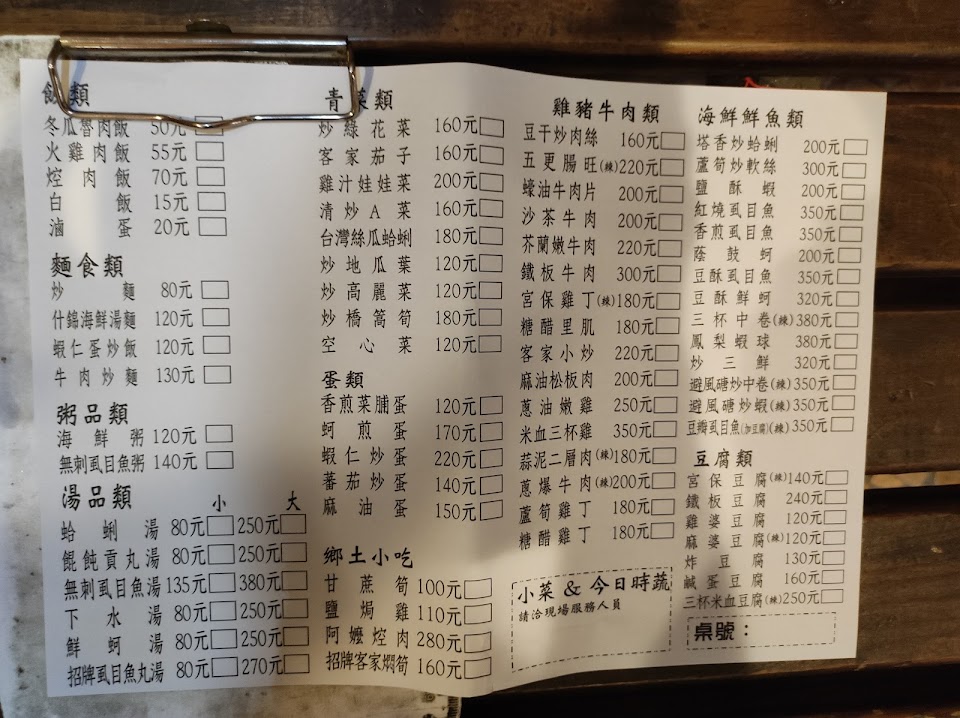 飯類
冬瓜魯肉飯 50元
火雞肉飯 55元
焢肉飯 70元
白飯 15元
滷蛋 20元
麵食類
炒麵 80元
什錦海鮮湯麵 120元
蝦仁蛋炒飯 120元
牛肉炒麵 130元
粥品類
海鮮粥 120元
無刺虱目魚粥 140元
湯品類 小 大
蛤蜊湯 80元 250元
餛飩貢丸湯 80元 250元
無刺虱目魚湯 135元 380元
下水湯 80元 250元
鮮蚵湯 80元 250元
招牌虱目魚丸湯 80元 270元
青菜類
炒綠花菜 160元
客家茄子 160元
雞汁娃娃菜 200元
清炒A菜 160元
台灣絲瓜蛤蜊 180元
炒地瓜葉 120元
炒高麗菜 120元
炒橋蒿筍 180元
空心菜 120元
蛋類
香煎菜脯蛋 120元
蚵煎蛋 170元
蝦仁炒蛋 220元
蕃茄炒蛋 140元
麻油蛋 150元
鄉土小吃
甘蔗筍 100元
鹽焗雞 110元
阿嬤焢肉 280元
招牌客家燜筍 160元
雞豬牛肉類
豆干炒肉絲 160元
五更腸旺(辣) 220元
蠔油牛肉片 200元
沙茶牛肉 200元
芥蘭嫩牛肉 220元
鐵板牛肉 300元
宮保雞丁(辣) 180元
糖醋里肌 180元
客家小炒 220元
麻油松板肉 200元
蔥油嫩雞 250元
米血三杯雞 350元
蒜泥二層肉(辣) 180元
蔥爆牛肉(辣) 200元
蘆筍雞丁 180元
糖醋雞丁 180元
小菜 & 今日時蔬
請洽現場服務人員
海鮮鮮魚類
塔香炒蛤蜊 200元
蘆筍炒軟絲 300元
鹽酥蝦 200元
紅燒虱目魚 350元
香煎虱目魚 350元
蔭鼓蚵 200元
豆酥虱目魚 350元
豆酥鮮蚵 320元
三杯中卷(辣) 380元
鳳梨蝦球 380元
炒三鮮 320元
避風磄炒中卷(辣) 350元
避風磄炒蝦(辣) 350元
豆瓣虱目魚(加豆腐)(辣) 350元
豆腐類
宮保豆腐(辣) 140元
鐵板豆腐 240元
雞婆豆腐 120元
麻婆豆腐(辣) 120元
炸豆腐 130元
鹹蛋豆腐 160元
三杯米血豆腐(辣) 250元
桌號：